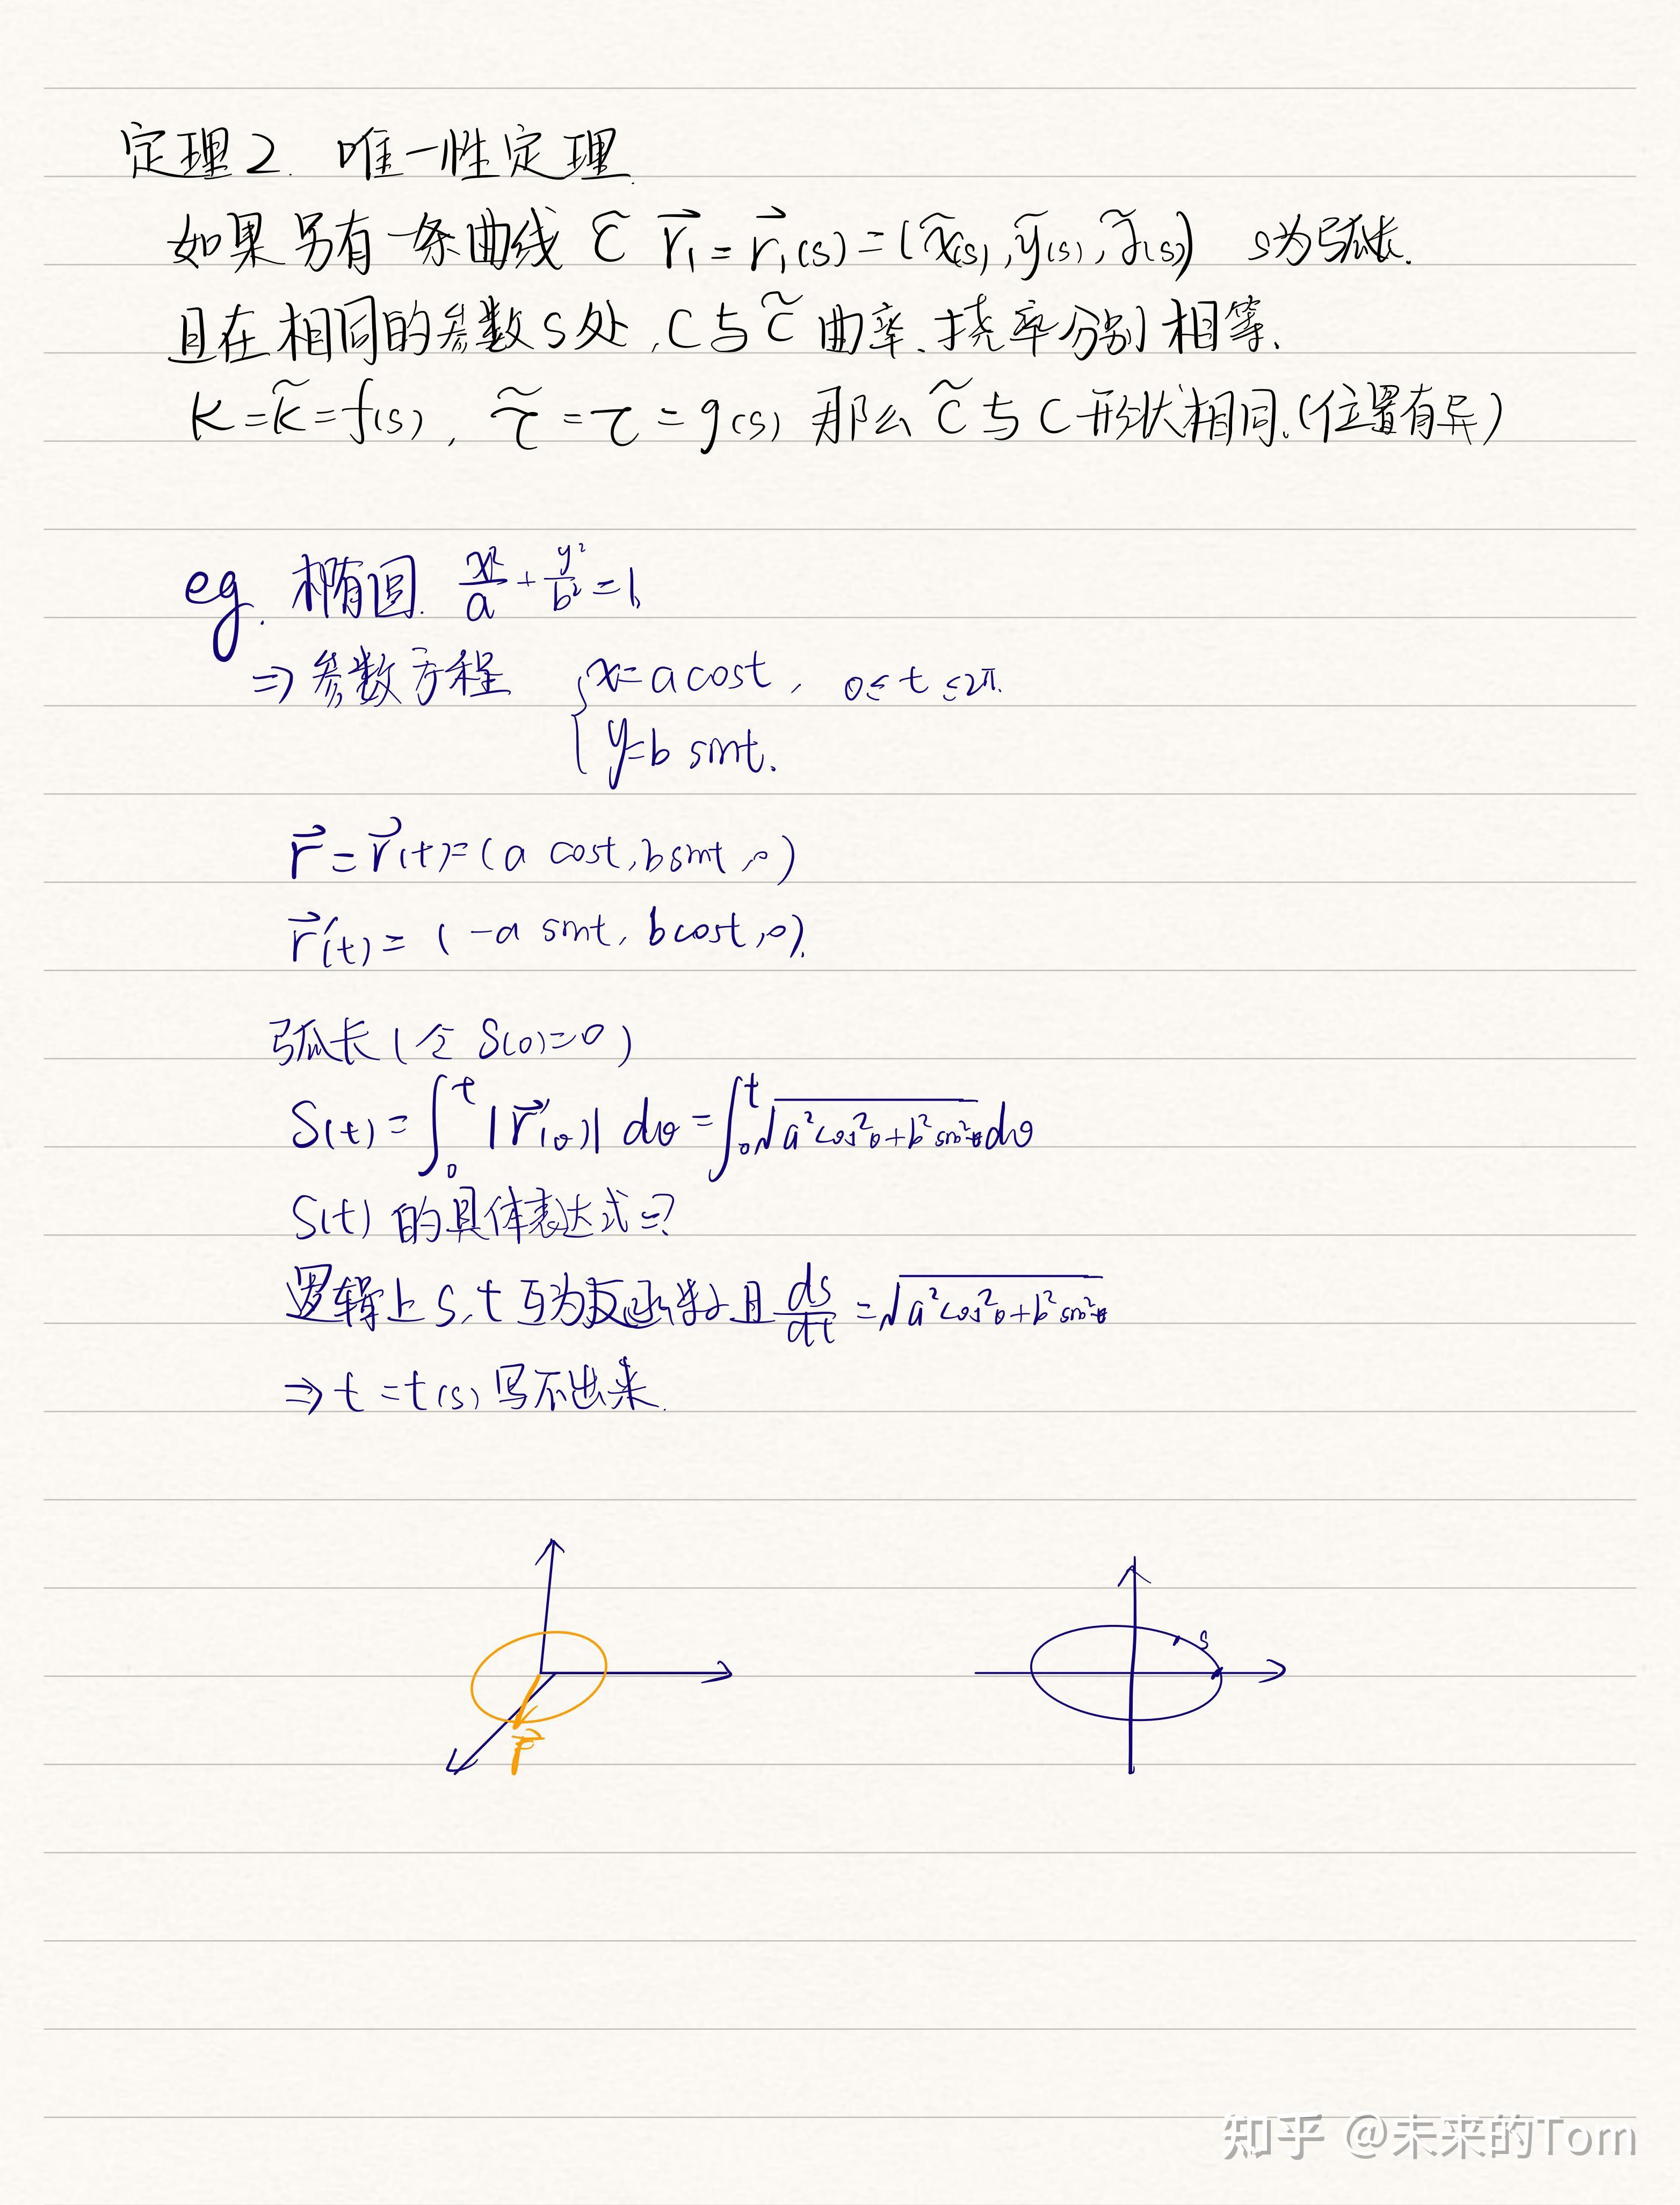 定理2. 唯一性定理.
如果另有一条曲线 C̃ r⃗₁ = r⃗₁(s) = (x̃(s), ỹ(s), z̃(s)) s为弧长.
且在相同的参数s处, C与C̃ 曲率、挠率分别相等.
κ = κ̃ = f(s), τ̃ = τ = g(s) 那么 C̃ 与 C 形状相同.(位置有异)
eg. 椭圆. x²/a + y²/b² = 1,
⇒ 参数方程 { x = a cost, 0 ≤ t ≤ 2π.
y = b sint.
r⃗ = r⃗(t) = (a cost, b sint, 0)
r⃗'(t) = (-a sint, b cost, 0).
弧长 (令 S(0)=0)
S(t) = ∫₀ᵗ |r⃗'(θ)| dθ = ∫₀ᵗ √(a²cos²θ + b²sin²θ) dθ
S(t) 的具体表达式 = ?
逻辑上 s, t 互为反函数 且 ds/dt = √(a²cos²θ + b²sin²θ)
⇒ t = t(s) 写不出来.
s
r⃗
知乎 @未来的Tom